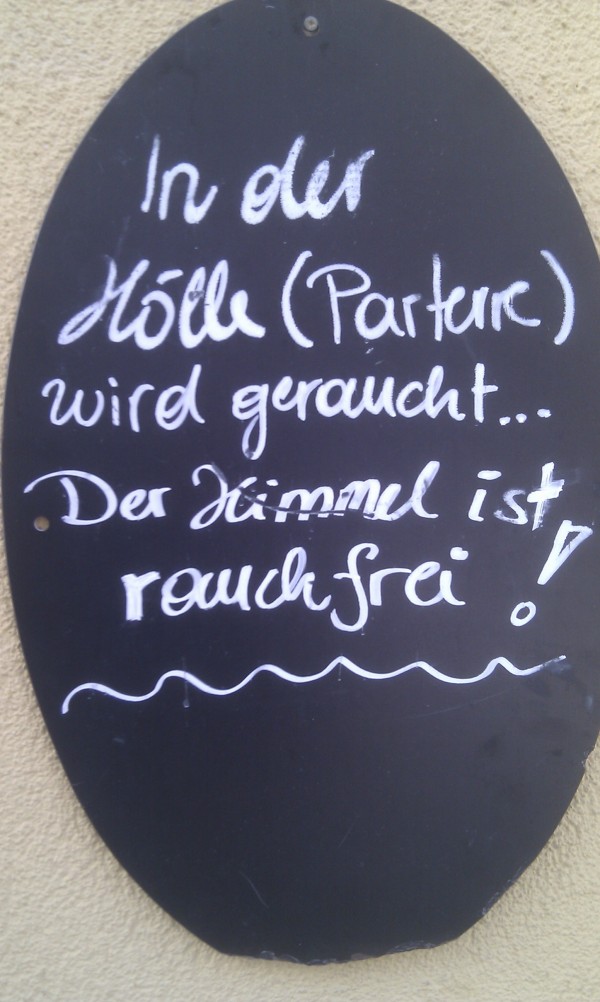 In der
Hölle (Parterre)
wird geraucht...
Der Himmel ist
rauchfrei!